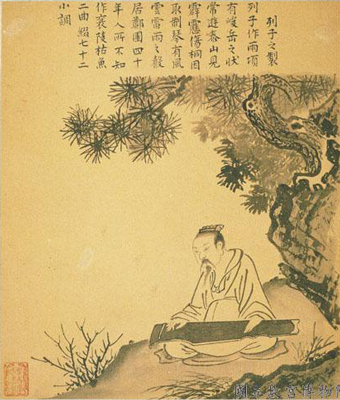 列子之製
列子作兩項
有峻岳之狀
常遊泰山見
霹靂傷桐因
取制琴有風
雲雷雨之聲
居鄭圃四十
年人所不知
作襄陵枯魚
二曲緝七十二
小調
國立故宮博物院